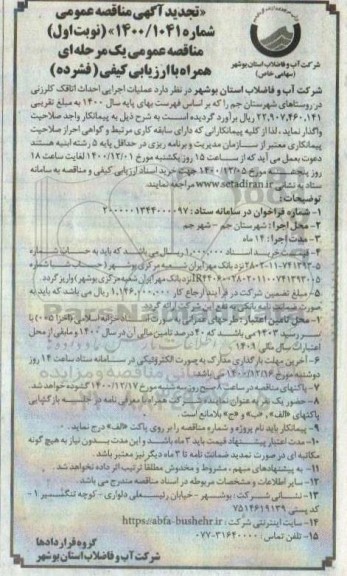 «تجدید آگهی مناقصه عمومی
شماره ۱۴۰۰/۱۰۴۱» (نوبت اول)
مناقصه عمومی یک مرحله‌ای
همراه با ارزیابی کیفی (فشرده)
شرکت آب و فاضلاب استان بوشهر
(سهامی خاص)
شرکت آب و فاضلاب استان بوشهر در نظر دارد عملیات اجرایی احداث اتاقک کلرزنی
در روستاهای شهرستان جم را که بر اساس فهرست بهای پایه سال ۱۴۰۰ به مبلغ تقریبی
۲۲,۹۰۷,۴۶۰,۱۴۱ ریال برآورد گردیده است به شرح ذیل به پیمانکار واجد صلاحیت
واگذار نماید، لذا از کلیه پیمانکارانی که دارای سابقه کاری مرتبط و گواهی احراز صلاحیت
پیمانکاری معتبر از سازمان مدیریت و برنامه ریزی در حداقل پایه ۵ رشته ابنیه هستند
دعوت بعمل می آید که از ساعت ۱۵ روز یکشنبه مورخ ۱۴۰۰/۱۲/۰۱ لغایت ساعت ۱۸
روز پنجشنبه مورخ ۱۴۰۰/۱۲/۰۵ جهت خرید اسناد ارزیابی کیفی و مناقصه به سامانه
ستاد به نشانی www.setadiran.ir مراجعه نمایند.
توضیحات:
۱- شماره فراخوان در سامانه ستاد: ۲۰۰۰۰۰۱۳۴۴۰۰۰۰۹۷
۲- محل اجرا: شهرستان جم - شهر جم
۳- مدت اجرا: ۱۴ ماه
۴- قیمت خرید اسناد ۱,۰۰۰,۰۰۰ ریال می باشد که باید به حساب شماره
نزد بانک مهر ایران شعبه مرکزی بوشهر
نزد بانک مهر ایران شعبه مرکزی بوشهر) واریز گردد.
۵- مبلغ تضمین شرکت در فرآیند ارجاع کار ۱,۱۴۶,۰۰۰,۰۰۰ ریال می باشد که باید به
صورت ارائه گردد.
۶- محل تامین اعتبار: اسناد خزانه اسلامی
می باشد که ۴۰ درصد تامین مالی آن در سال ۱۴۰۰ و مابقی از محل
اعتبارات سال مالی ۱۴۰۱
۶- آخرین مهلت بارگذاری مدارک به صورت الکترونیکی در سامانه ستاد ساعت ۱۴ روز
دوشنبه مورخ ۱۴۰۰/۱۲/۱۶ می باشد
۷- پاکتهای مناقصه در ساعت ۸ صبح روز سه شنبه مورخ ۱۴۰۰/۱۲/۱۷ گشوده خواهد شد.
۸- حضور یک نفر به عنوان نماینده شرکت همراه با معرفی نامه در جلسه بازگشایی
پاکتهای «الف»، «ب» و «ج» بلامانع است
۹- پیمانکار باید نام پروژه و شماره مناقصه را بر روی پاکت «الف» درج نماید.
۱۰- مدت اعتبار پیشنهاد قیمت باید ۳ ماه باشد و این مدت بدون نیاز به هیچ گونه
مکاتبه ای در صورت تمدید ضمانت نامه تا ۳ ماه دیگر نیز معتبر باشد.
۱۱- به پیشنهادهای مبهم، مشروط و مخدوش مطلقا ترتیب اثر داده نخواهد شد.
۱۲- سایر اطلاعات و مشخصات مربوطه در اسناد مناقصه مندرج می باشد.
۱۳- نشانی شرکت: بوشهر - خیابان رئیسعلی دلواری - کوچه تنگسیر ۱ -
کد پستی ۷۵۱۴۶۱۹۱۳۹
۱۴- سایت اینترنتی شرکت: https://abfa-bushehr.ir
۱۵- تلفن تماس: ۰۷۷-۳۱۶۴۰۰۰۰
گروه قراردادها
شرکت آب و فاضلاب استان بوشهر